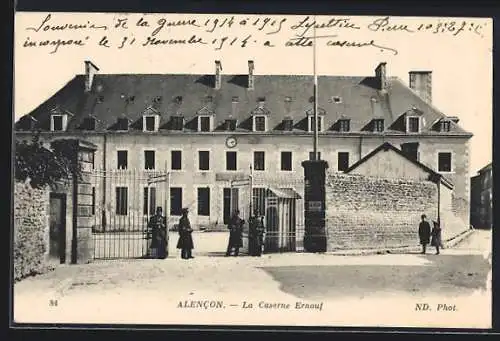 Souvenirs de la guerre 1914 à 1915 Lypettier Pierre 103
incorporé le 31 Novembre 1914 a cette caserne
84
ALENÇON. - La Caserne Ernouf
ND. Phot.